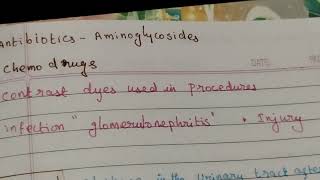 Antibiotics - Aminoglycosides
Chemo drugs
DATE
contrast dyes used in procedures
infection " glomerulonephritis" • Injury
in the urinary tract after